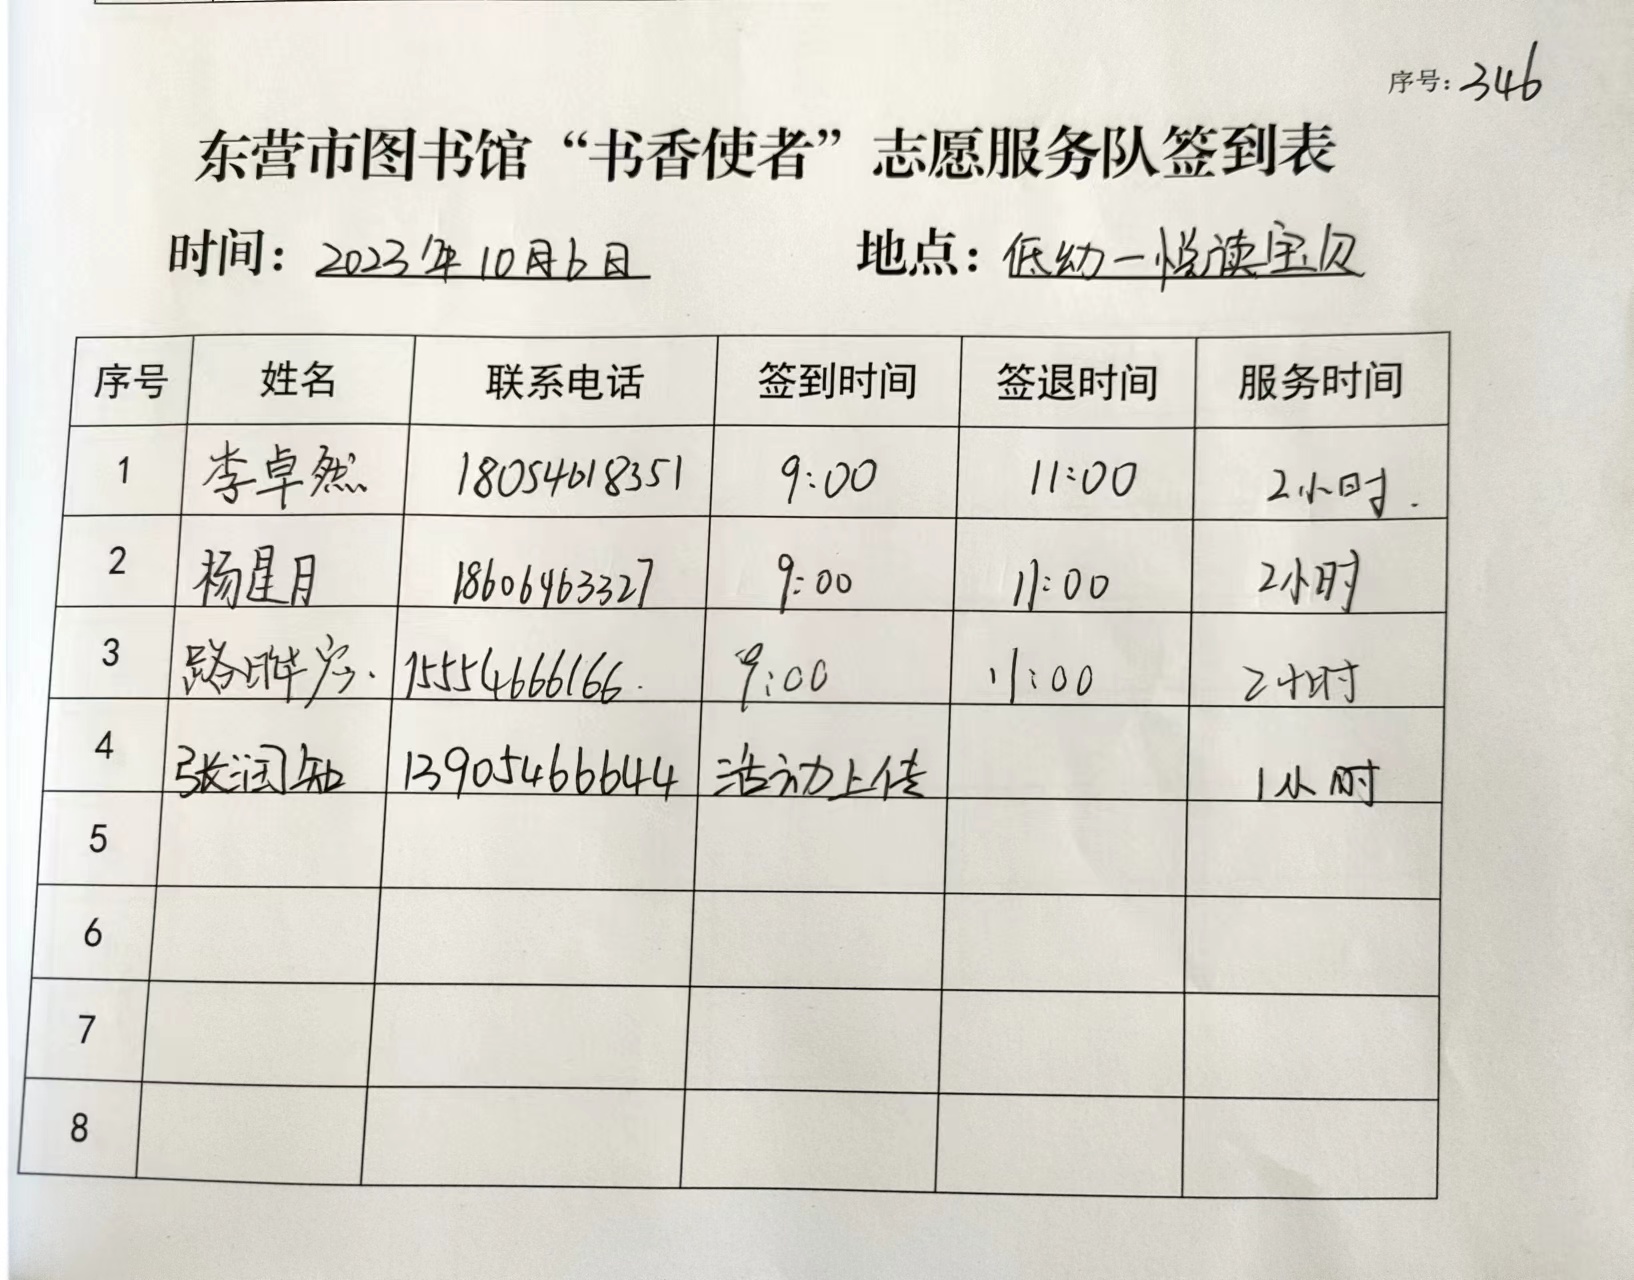 序号：346
东营市图书馆“书香使者”志愿服务队签到表
时间：2023年10月6日 地点：低幼一悦读宝贝
序号 姓名 联系电话 签到时间 签退时间 服务时间
1 李卓然 18054618351 9:00 11:00 2小时.
2 杨星月 18606463327 9:00 11:00 2小时
3 路晔宏. 15554666166. 9:00 11:00 2小时
4 张润知 13905466644 活动上传 1小时
5
6
7
8